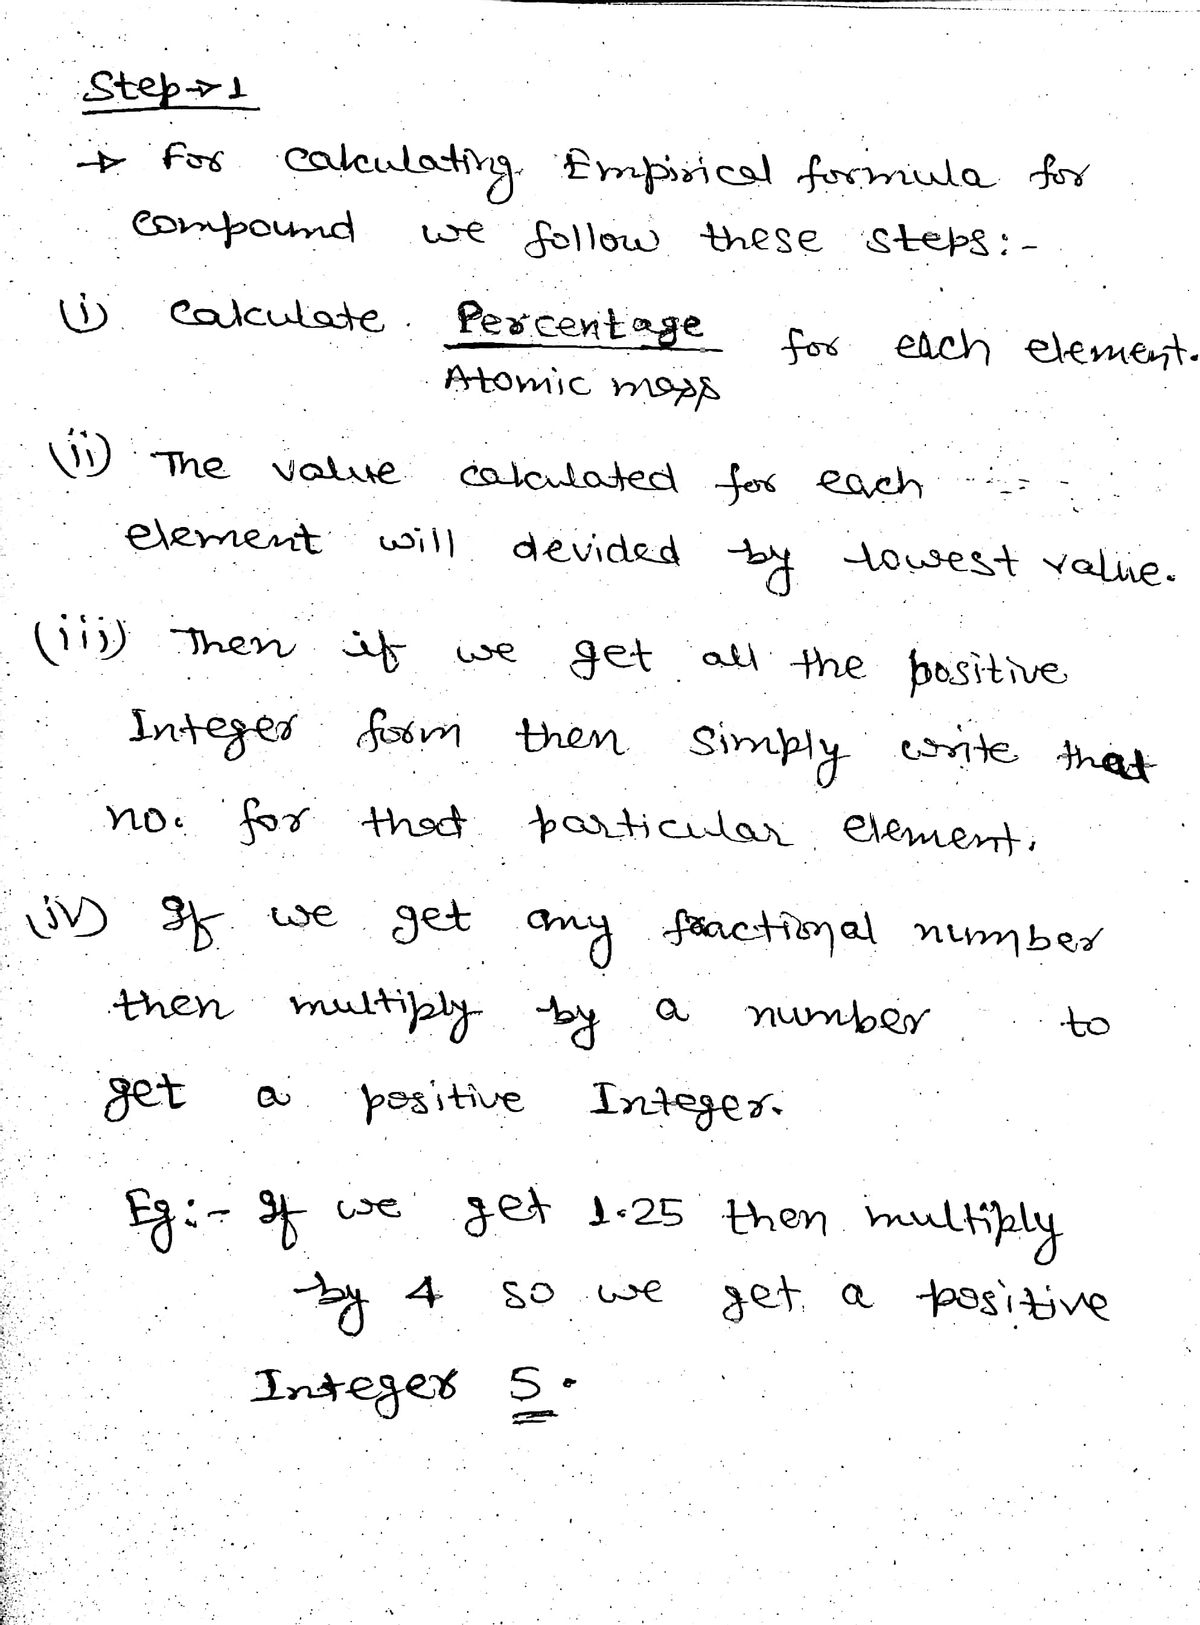 Step → 1
→ For calculating Empirical formula for
compound we follow these steps:-
(i) Calculate Percentage / Atomic mass for each element.
(ii) The value calculated for each
element will devided by lowest value.
(iii) Then if we get all the positive
Integer form then simply write that
no. for that particular element.
(iv) If we get any fractional number
then multiply by a number to
get a positive Integer.
Eg:- If we get 1.25 then multiply
by 4 so we get a positive
Integer 5.